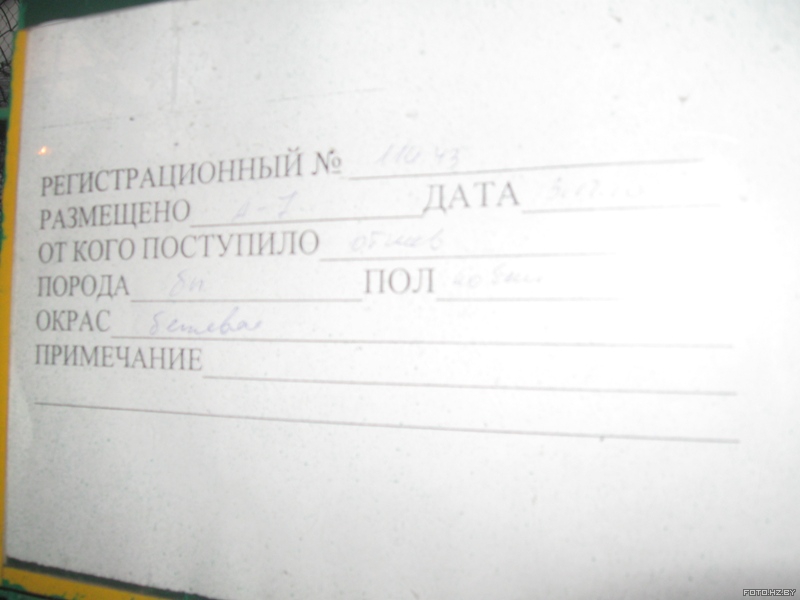 РЕГИСТРАЦИОННЫЙ №
РАЗМЕЩЕНО ДАТА
ОТ КОГО ПОСТУПИЛО
ПОРОДА бп ПОЛ
ОКРАС бежевая
ПРИМЕЧАНИЕ
FOTO.HZ.BY